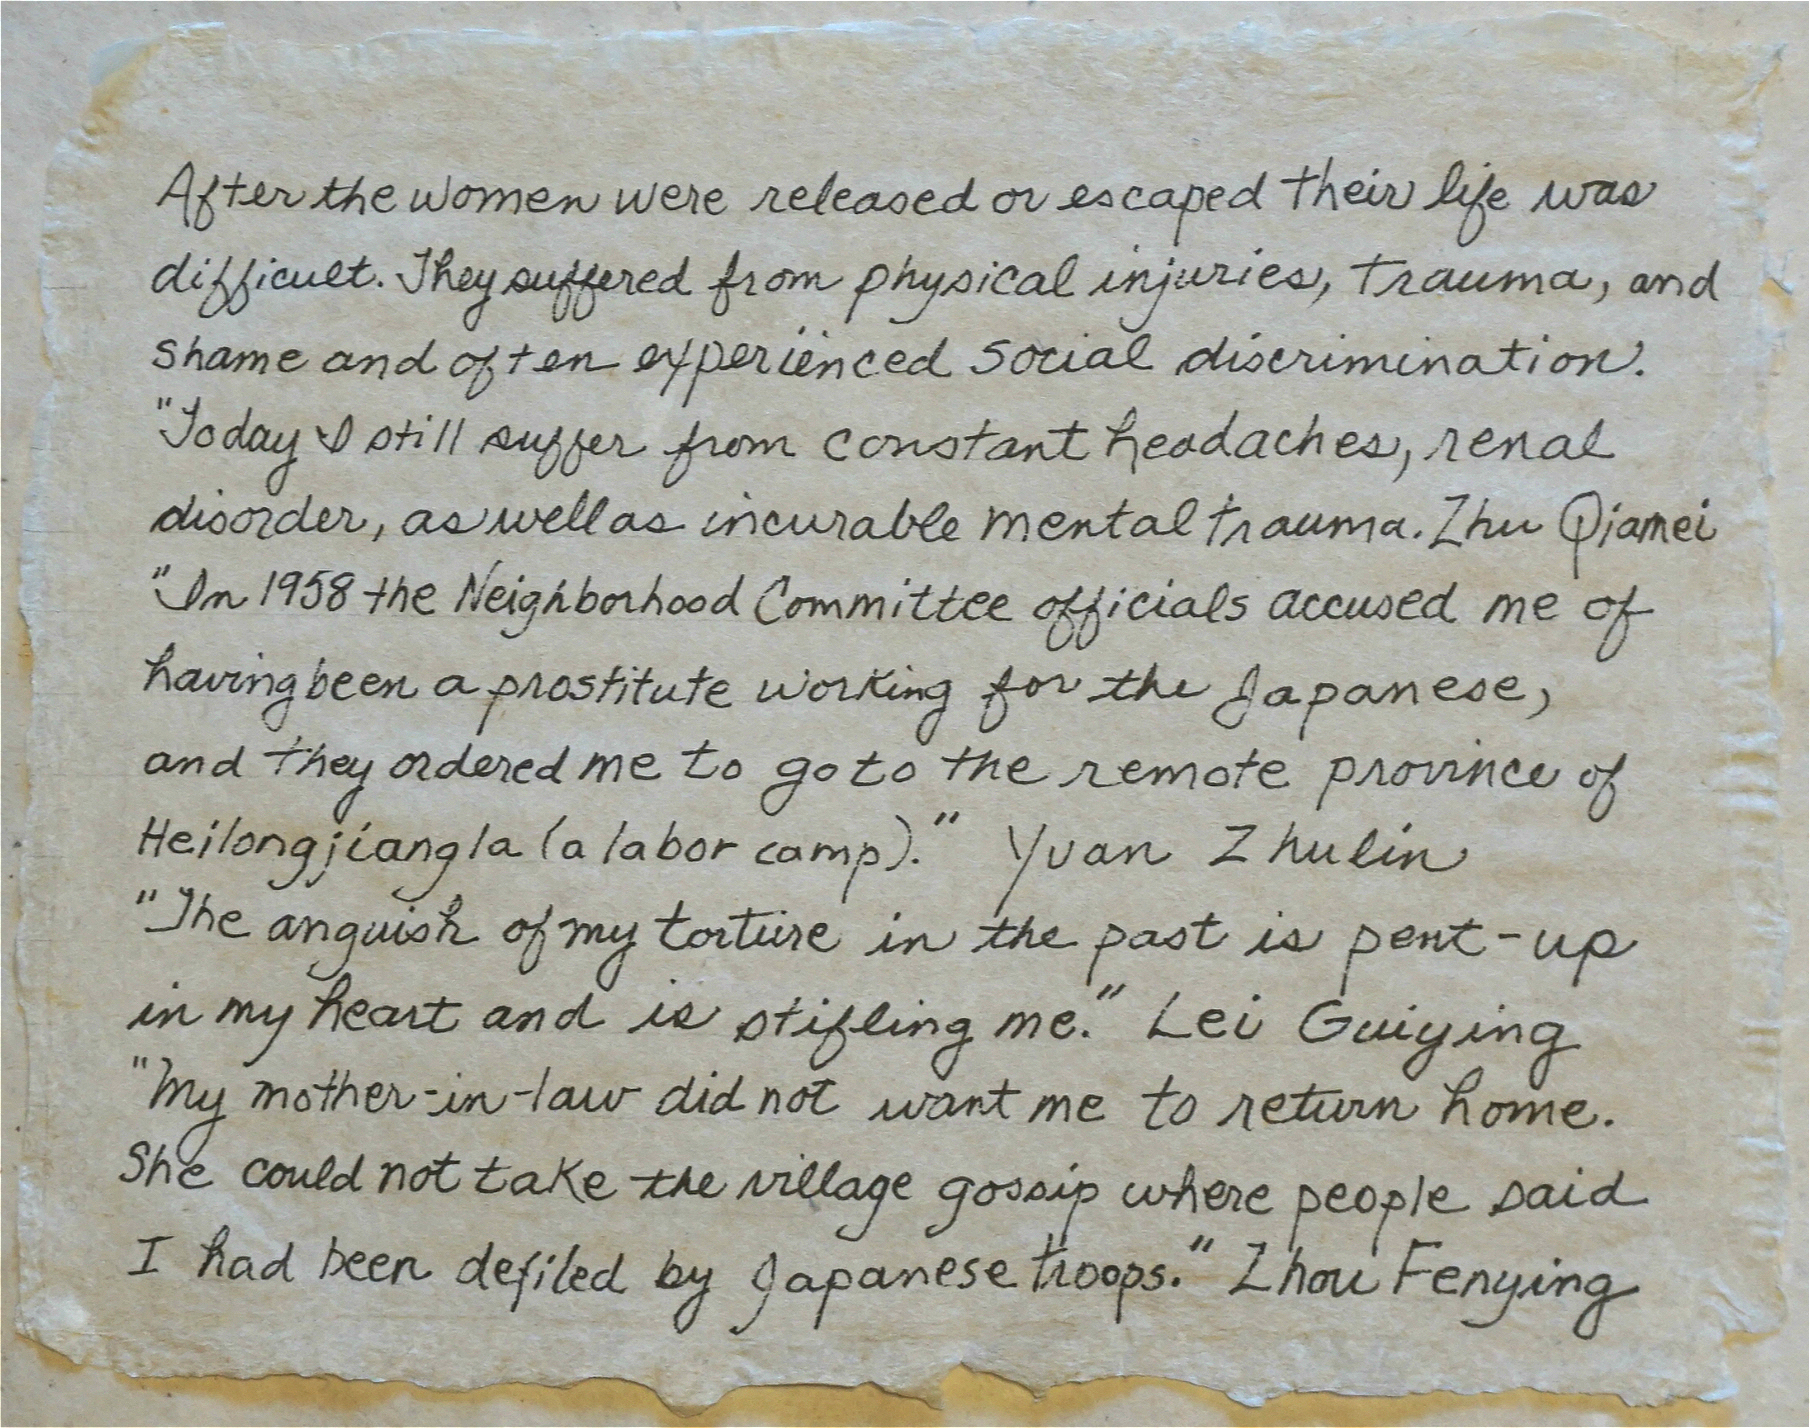 After the women were released or escaped their life was
difficult. They suffered from physical injuries, trauma, and
shame and often experienced social discrimination.
"Today I still suffer from constant headaches, renal
disorder, as well as incurable mental trauma. Zhu Qiamei
"In 1958 the Neighborhood Committee officials accused me of
having been a prostitute working for the Japanese,
and they ordered me to go to the remote province of
Heilongjiangla (a labor camp)." Yuan Zhulin
"The anguish of my torture in the past is pent-up
in my heart and is stifling me." Lei Guiying
"My mother-in-law did not want me to return home.
She could not take the village gossip where people said
I had been defiled by Japanese troops." Zhou Fenying